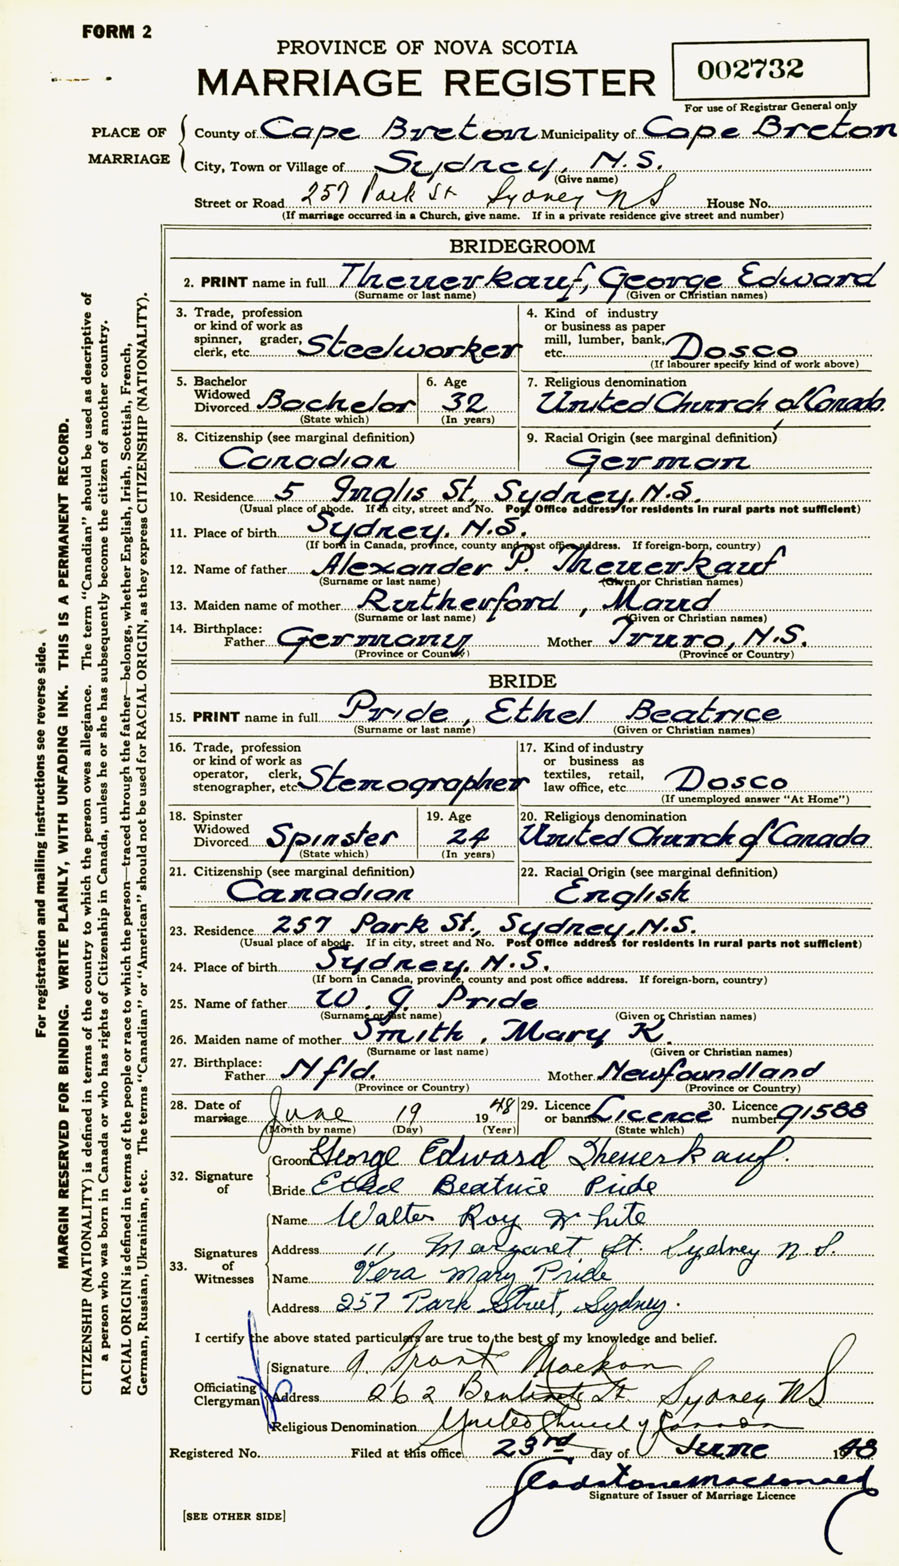 FORM 2
PROVINCE OF NOVA SCOTIA
MARRIAGE REGISTER
002732
For use of Registrar General only
PLACE OF MARRIAGE
County of Cape Breton Municipality of Cape Breton
City, Town or Village of Sydney, N.S.
(Give name)
Street or Road 257 Park St Sydney NS House No.
(If marriage occurred in a Church, give name. If in a private residence give street and number)
BRIDEGROOM
2. PRINT name in full Theuerkauf, George Edward
(Surname or last name) (Given or Christian names)
3. Trade, profession or kind of work as spinner, grader, clerk, etc. Steelworker
4. Kind of industry or business as paper mill, lumber, bank, etc. Dosco
(If labourer specify kind of work above)
5. Bachelor Widowed Divorced Bachelor
(State which)
6. Age 32
(In years)
7. Religious denomination United Church of Canada
8. Citizenship (see marginal definition) Canadian
9. Racial Origin (see marginal definition) German
10. Residence 5 Inglis St, Sydney, N.S.
(Usual place of abode. If in city, street and No. Post Office address for residents in rural parts not sufficient)
11. Place of birth Sydney. N.S.
(If born in Canada, province, county and post office address. If foreign-born, country)
12. Name of father Alexander P. Theuerkauf
(Surname or last name) (Given or Christian names)
13. Maiden name of mother Rutherford, Maud
(Surname or last name) (Given or Christian names)
14. Birthplace: Father Germany Mother Truro, N.S.
(Province or Country) (Province or Country)
BRIDE
15. PRINT name in full Pride, Ethel Beatrice
(Surname or last name) (Given or Christian names)
16. Trade, profession or kind of work as operator, clerk, stenographer, etc. Stenographer
17. Kind of industry or business as textiles, retail, law office, etc. Dosco
(If unemployed answer "At Home")
18. Spinster Widowed Divorced Spinster
(State which)
19. Age 24
(In years)
20. Religious denomination United Church of Canada
21. Citizenship (see marginal definition) Canadian
22. Racial Origin (see marginal definition) English
23. Residence 257 Park St., Sydney, N.S.
(Usual place of abode. If in city, street and No. Post Office address for residents in rural parts not sufficient)
24. Place of birth Sydney. N.S.
(If born in Canada, province, county and post office address. If foreign-born, country)
25. Name of father W. J Pride
(Surname or last name) (Given or Christian names)
26. Maiden name of mother Smith, Mary K.
(Surname or last name) (Given or Christian names)
27. Birthplace: Father Nfld. Mother Newfoundland
(Province or Country) (Province or Country)
28. Date of marriage June 19 1948
(Month by name) (Day) (Year)
29. Licence or banns Licence
(State which)
30. Licence number 91588
32. Signature of
Groom George Edward Theuerkauf.
Bride Ethel Beatrice Pride
33. Signatures of Witnesses
Name Walter Roy White
Address 11, Margaret St. Sydney N.S.
Name Vera Mary Pride
Address 257 Park Street, Sydney.
I certify the above stated particulars are true to the best of my knowledge and belief.
Officiating Clergyman
Signature Frank
Address 262 Bentinck St Sydney NS
Religious Denomination United Church of Canada
Registered No. Filed at this office 23rd day of June 1948
Gladstone Macdonald
Signature of Issuer of Marriage Licence
[SEE OTHER SIDE]
For registration and mailing instructions see reverse side.
MARGIN RESERVED FOR BINDING. WRITE PLAINLY, WITH UNFADING INK. THIS IS A PERMANENT RECORD.
CITIZENSHIP (NATIONALITY) is defined in terms of the country to which the person owes allegiance. The term "Canadian" should be used as descriptive of
a person who was born in Canada or who has rights of Citizenship in Canada, unless he or she has subsequently become the citizen of another country.
RACIAL ORIGIN is defined in terms of the people or race to which the person—traced through the father—belongs, whether English, Irish, Scottish, French,
German, Russian, Ukrainian, etc. The terms "Canadian" or "American" should not be used for RACIAL ORIGIN, as they express CITIZENSHIP (NATIONALITY).